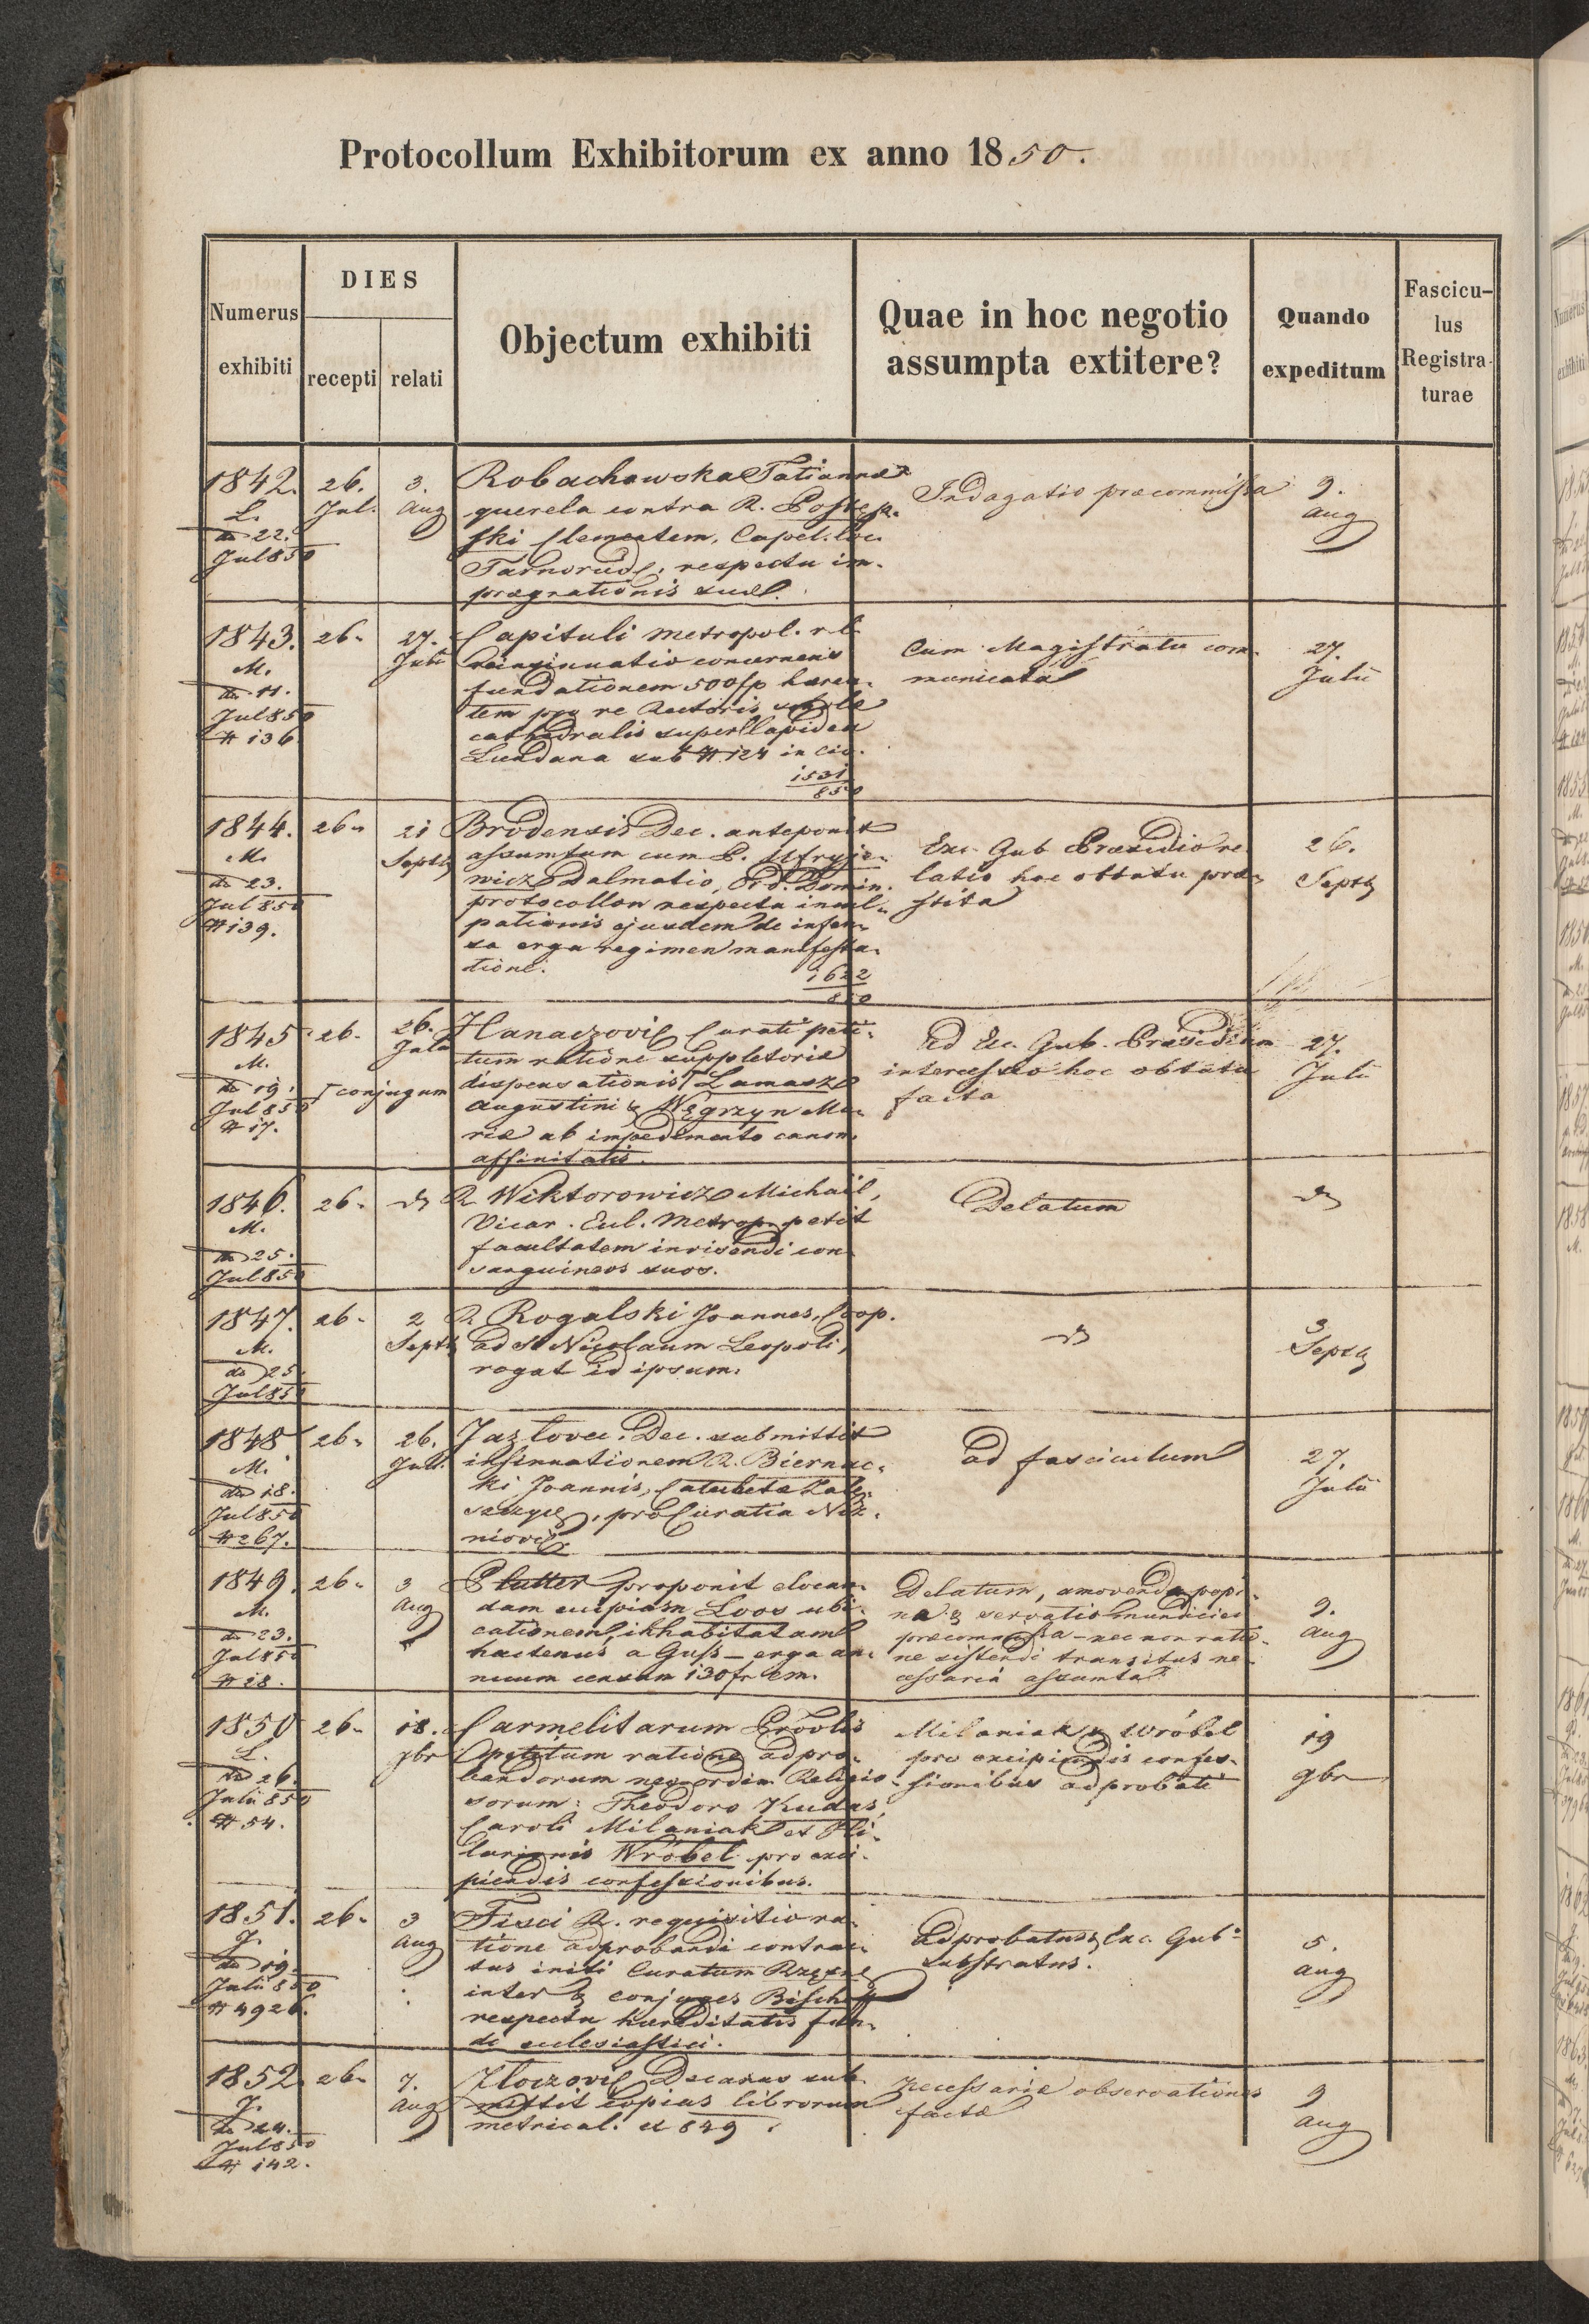 Protocollum Exhibitorum ex anno 1850.
Numerus exhibiti
DIES
recepti
relati
Objectum exhibiti
Quae in hoc negotio assumpta extitere?
Quando expeditum
Fascicu-
lus
Registra-
turae
1842.
L.
do 22.
Jul 850
26.
Jul.
3.
Aug
Robachowska Tatianna
querela contra R.
ski Clementem, Capel. loc.
Tarnorudæ, respectu im-
prægnationis suæ.
Indagatio præcommissa
9.
Aug
1843.
M.
do 11.
Jul 850
# 136
26.
27.
Julii
Capituli Metropol. r. l.
reinsinuatio concernens
fundationem 500 fp hæren-
tem pro re Rectoris scholæ
cathedralis super lapidea
Lundana sub # 124 in civ.
1531
850
Cum Magistratu com-
municata
27.
Julii
1844.
M.
do 23.
Jul 850
# 139.
26.
21
Septb
Brodensis Dec. anteponit
assumtum cum P.
wicz Dalmatio, Ord. Domin.
protocollon respectu incul-
pationis ejusdem de infen-
sa erga regimen manifesta-
tione.
1622
850
Exc. Gub. Præsidio re-
latio hoc obtutu præ-
stita
26.
Septb
1845
M.
do 19.
Jul 850
# 17.
26.
26.
Julii
Hanaczoviæ Curati peti-
tum ratione suppletoriæ
dispensationis Γ Lamasz
Γ conjugum
Augustini & Węgrzyn Ma-
riæ ab impedimento canon.
affinitatis.
Ad Exc. Gub. Præsidium
intercessio hoc obtutu
facta
27.
Julii
1846.
M.
do 25.
Jul 850
26.
do
R. Wiktorowicz Michaël,
Vicar. Eccl. Metrop. petit
facultatem invisendi con-
sanguineos suos.
Delatum
do
1847.
M.
do 25.
Jul 850
26.
2
Septb
R. Rogalski Joannes, Coop.
ad St Nicolaum Leopoli,
rogat id ipsum.
do
3
Septb
1848
M.
do 18.
Jul 850
# 267.
26.
26.
Jul.
Jazlovec. Dec. submittit
insinuationem R. Biernac-
ki Joannis, Catechetæ Zale-
szczycæ, pro Curatia Niż-
nioviæ
ad fasciculum
27.
Julii
1849.
M.
do 23.
Jul 850
# 28.
26.
3
Aug
Plutter proponit elocan-
dam cuipiam Loos ubi-
cationem, inhabitatam
hactenus a Guss — erga an-
nuum censum 130 fr cm.
Delatum, amovenda popi-
na & servatio mundiciei
præcommissa — nec non ratio-
ne sistendi transitus ne-
cessaria assumta
9.
Aug
1850
L.
do 26.
Julii 850
# 54.
26.
18.
9br
Carmelitarum Prövlis
petitum ratione adpro-
bandorum neo-ordin. Religio-
sorum: Theodoro Kudas,
Caroli Milaniak et Hi-
larionis Wróbel pro exci-
piendis confessionibus.
Milaniak & Wróbel
pro excipiendis confes-
sionibus adprobati
19
9br
1851.
J.
do 19.
Julii 850
# 4926.
26.
3
Aug
Fisci R. requisitio ra-
tione adprobandi contrac-
tus initi Curatum Rzęsnæ
inter & conjuges Bischoff
respectu hæreditatis fun-
di ecclesiastici.
Adprobatus & Exc. Gub.
substratus.
5.
Aug
1852
J.
do 24.
Jul 850
# 142.
26.
7.
Aug
Złoczoviæ Decanus sub-
mittit copias librorum
metrical. ex 849.
Necessariæ observationes
factæ
9
Aug